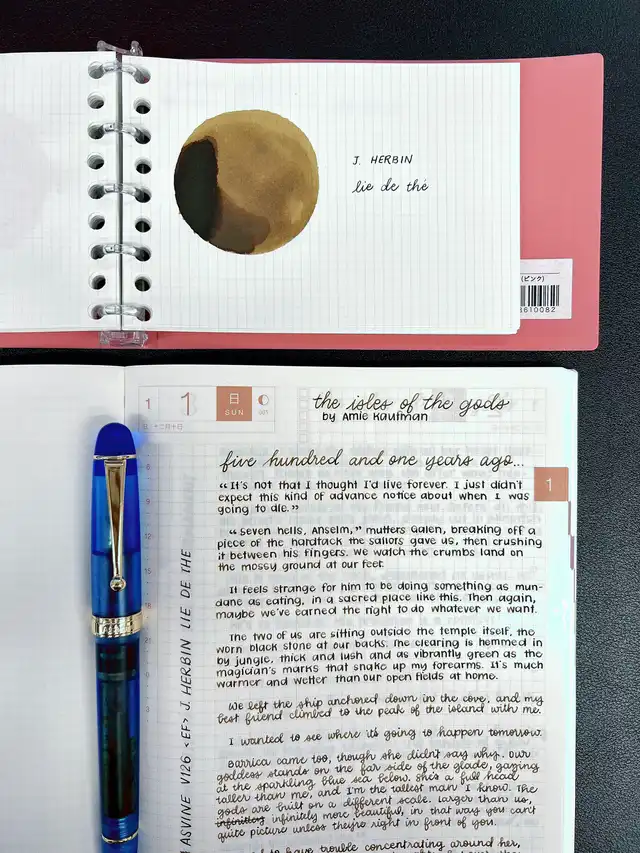 J. HERBIN
lie de thé
(ピンク)
1
1
日
SUN
001
the isles of the gods
by Amie Kaufman
five hundred and one years ago...
1
"It's not that I thought I'd live forever. I just didn't
expect this kind of advance notice about when I was
going to die."
"Seven hells, Anselm," mutters Galen, breaking off a
piece of the hardtack the sailors gave us, then crushing
it between his fingers. We watch the crumbs land on
the mossy ground at our feet.
It feels strange for him to be doing something as mun-
dane as eating, in a sacred place like this. Then again,
maybe we've earned the right to do whatever we want.
The two of us are sitting outside the temple itself, the
worn black stone at our backs. The clearing is hemmed in
by jungle, thick and lush and as vibrantly green as the
magician's marks that snake up my forearms. It's much
warmer and wetter than our open fields at home.
We left the ship anchored down in the cove, and my
best friend climbed to the peak of the island with me.
I wanted to see where it's going to happen tomorrow.
Barrica came too, though she didn't say why. Our
goddess stands on the far side of the glade, gazing
at the sparkling blue sea below. She's a full head
taller than me, and I'm the tallest man I know. The
gods are built on a different scale. Larger than us,
infinitley infinitely more beautiful, in that way you can't
quite picture unless they're right in front of you.
to have trouble concentrating around her,
ASVINE V126 <EF> J. HERBIN LIE DE THE